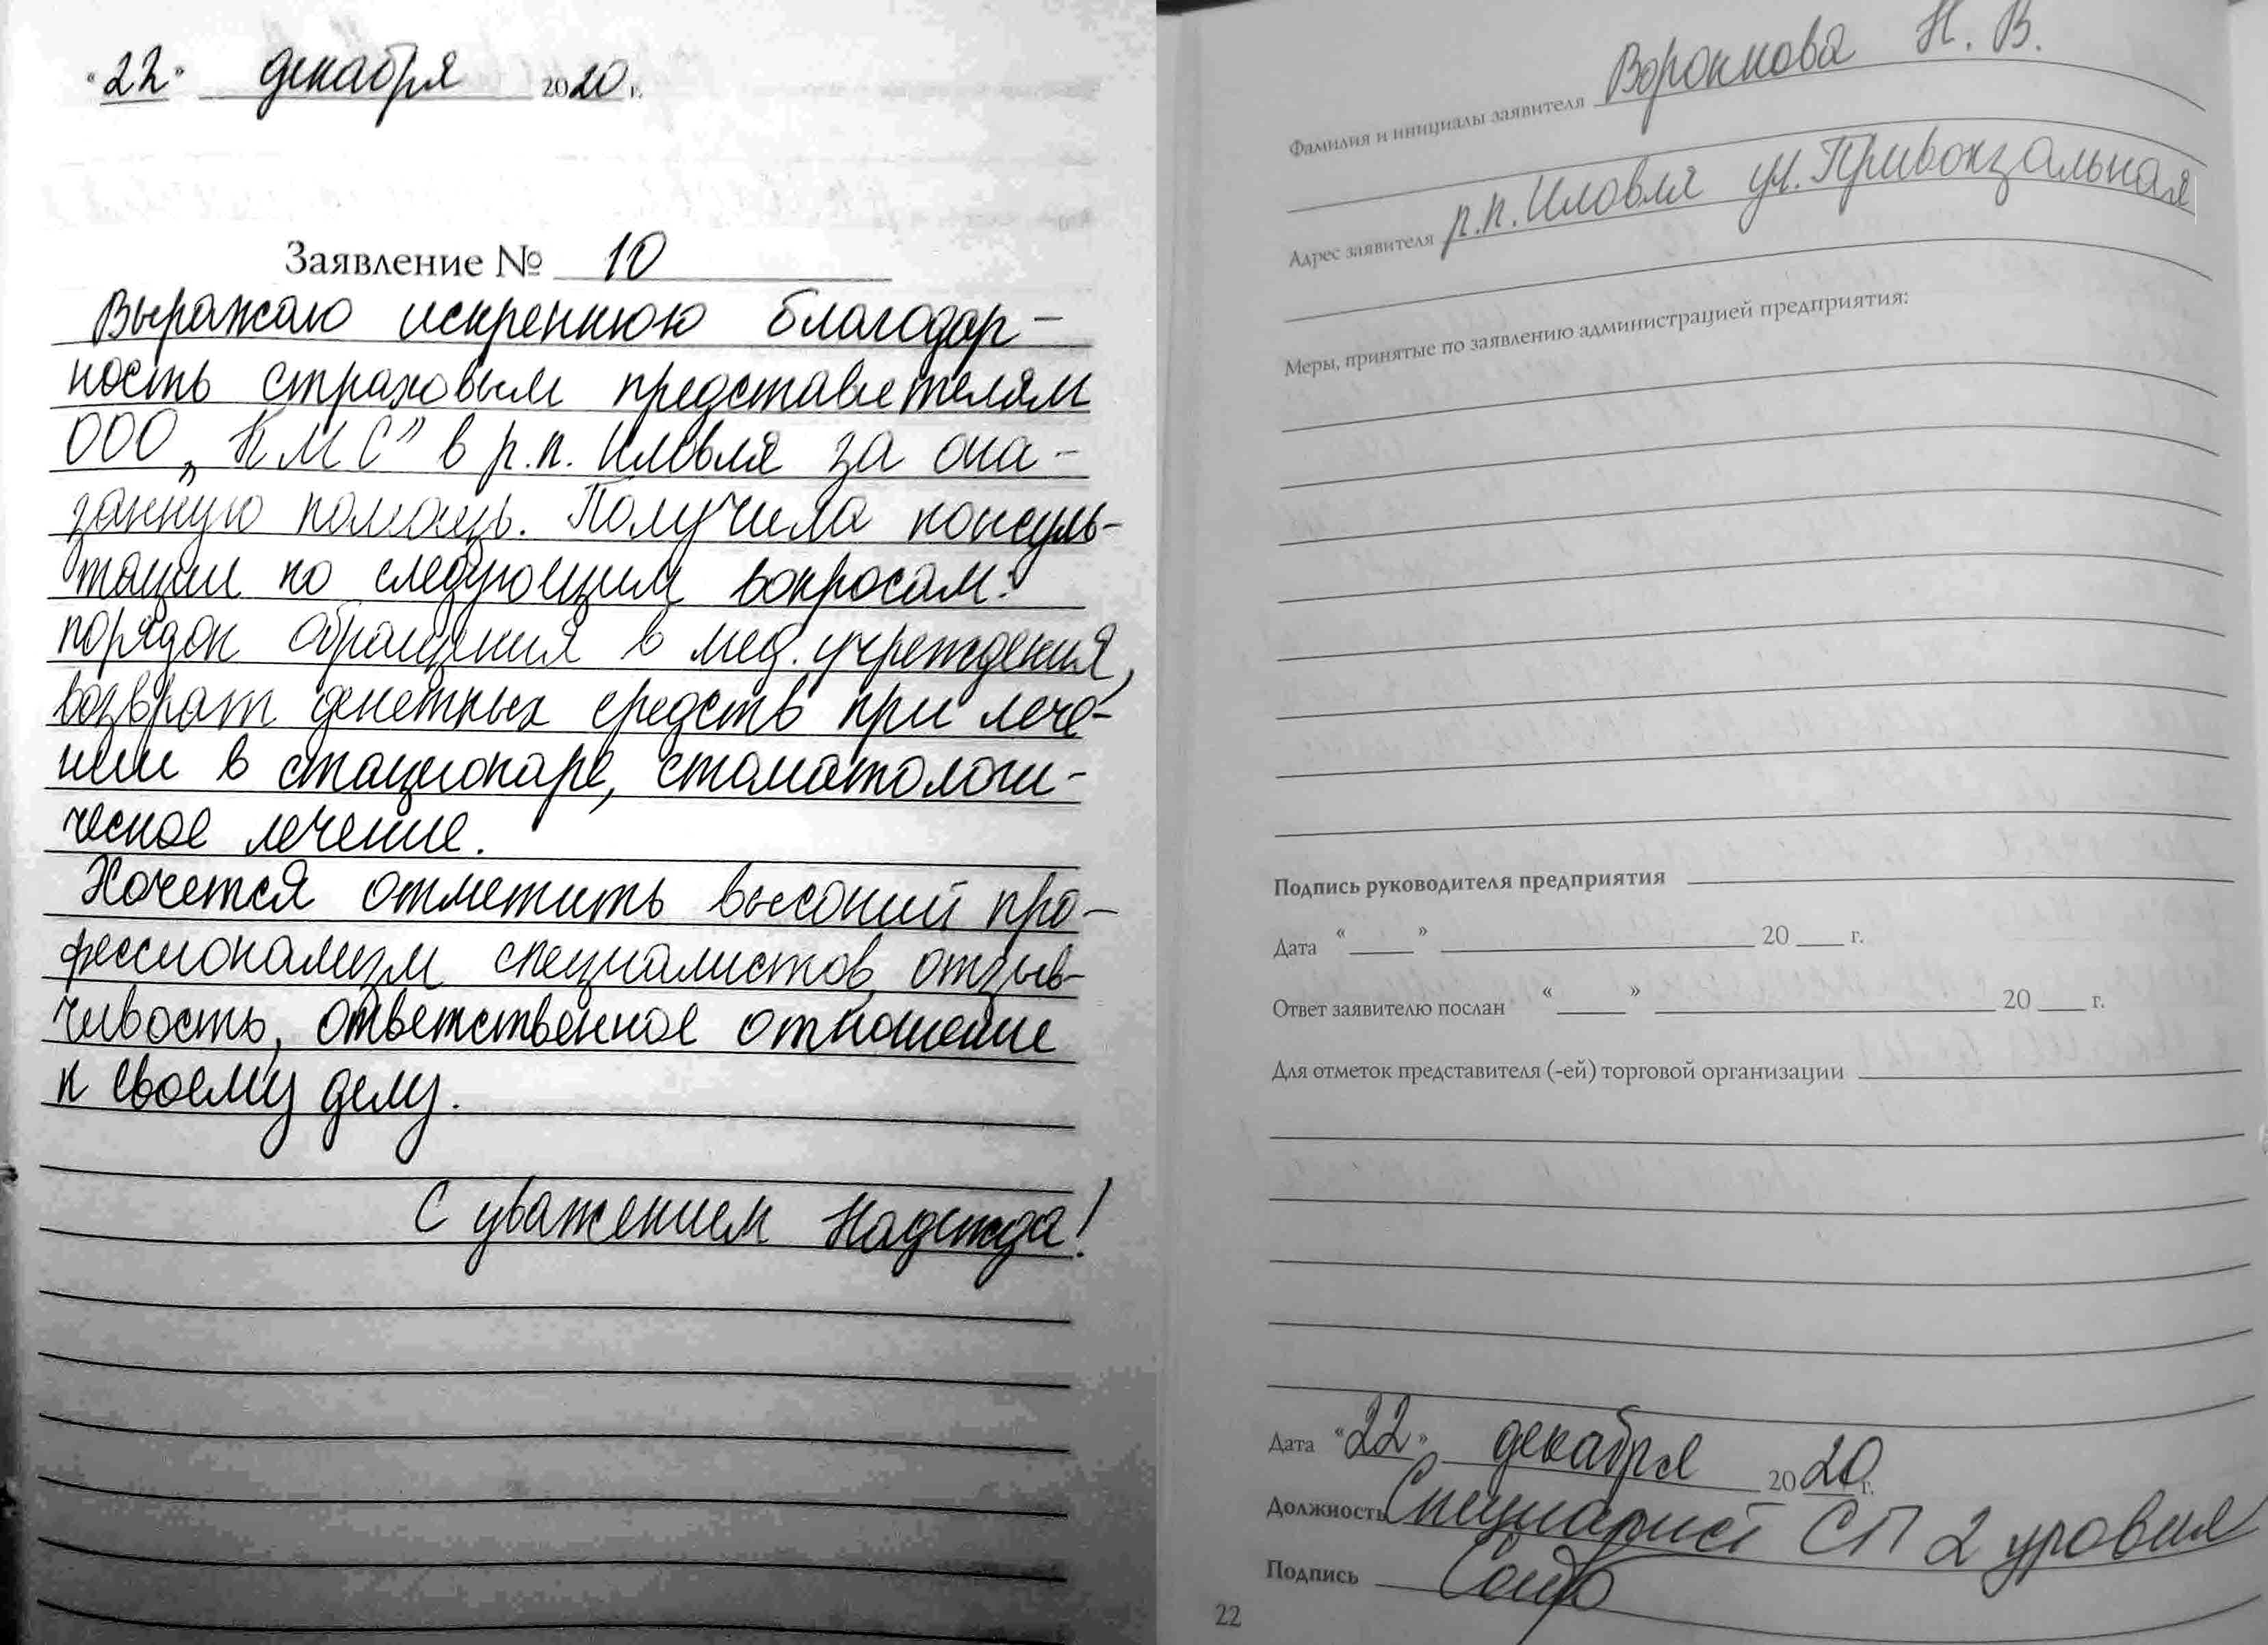 «22» декабря 2020 г.
Заявление № 10
Выражаю искреннюю благодар-
ность страховым представителям
ООО „КМС" в р.п. Иловля за ока-
занную помощь. Получила консуль-
тации по следующим вопросам:
порядок обращения в мед. учреждения,
возврат денежных средств при лече-
нии в стационаре, стоматологи-
ческое лечение.
Хочется отметить высокий про-
фессионализм специалистов, отзыв-
чивость, ответственное отношение
к своему делу.
С уважением Надежда!
Фамилия и инициалы заявителя Воронкова Н. В.
Адрес заявителя р.п. Иловля ул. Привокзальная
Меры, принятые по заявлению администрацией предприятия:
Подпись руководителя предприятия
Дата « » 20 г.
Ответ заявителю послан « » 20 г.
Для отметок представителя (-ей) торговой организации
Дата «22» декабря 2020 г.
Должность Специалист СП 2 уровня
Подпись
22